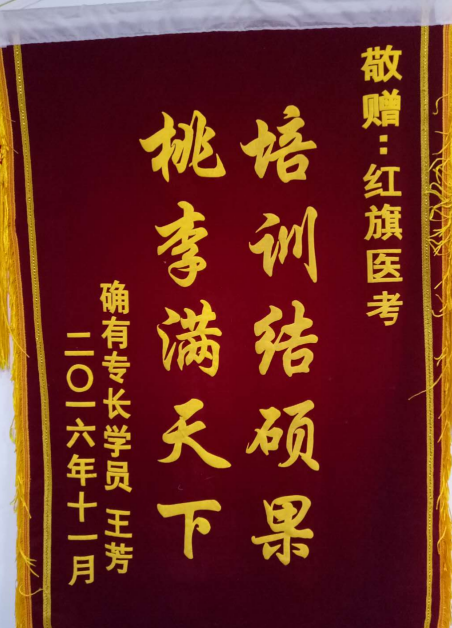 敬赠：红旗医考
培训结硕果
桃李满天下
确有专长学员 王芳
二〇一六年十一月